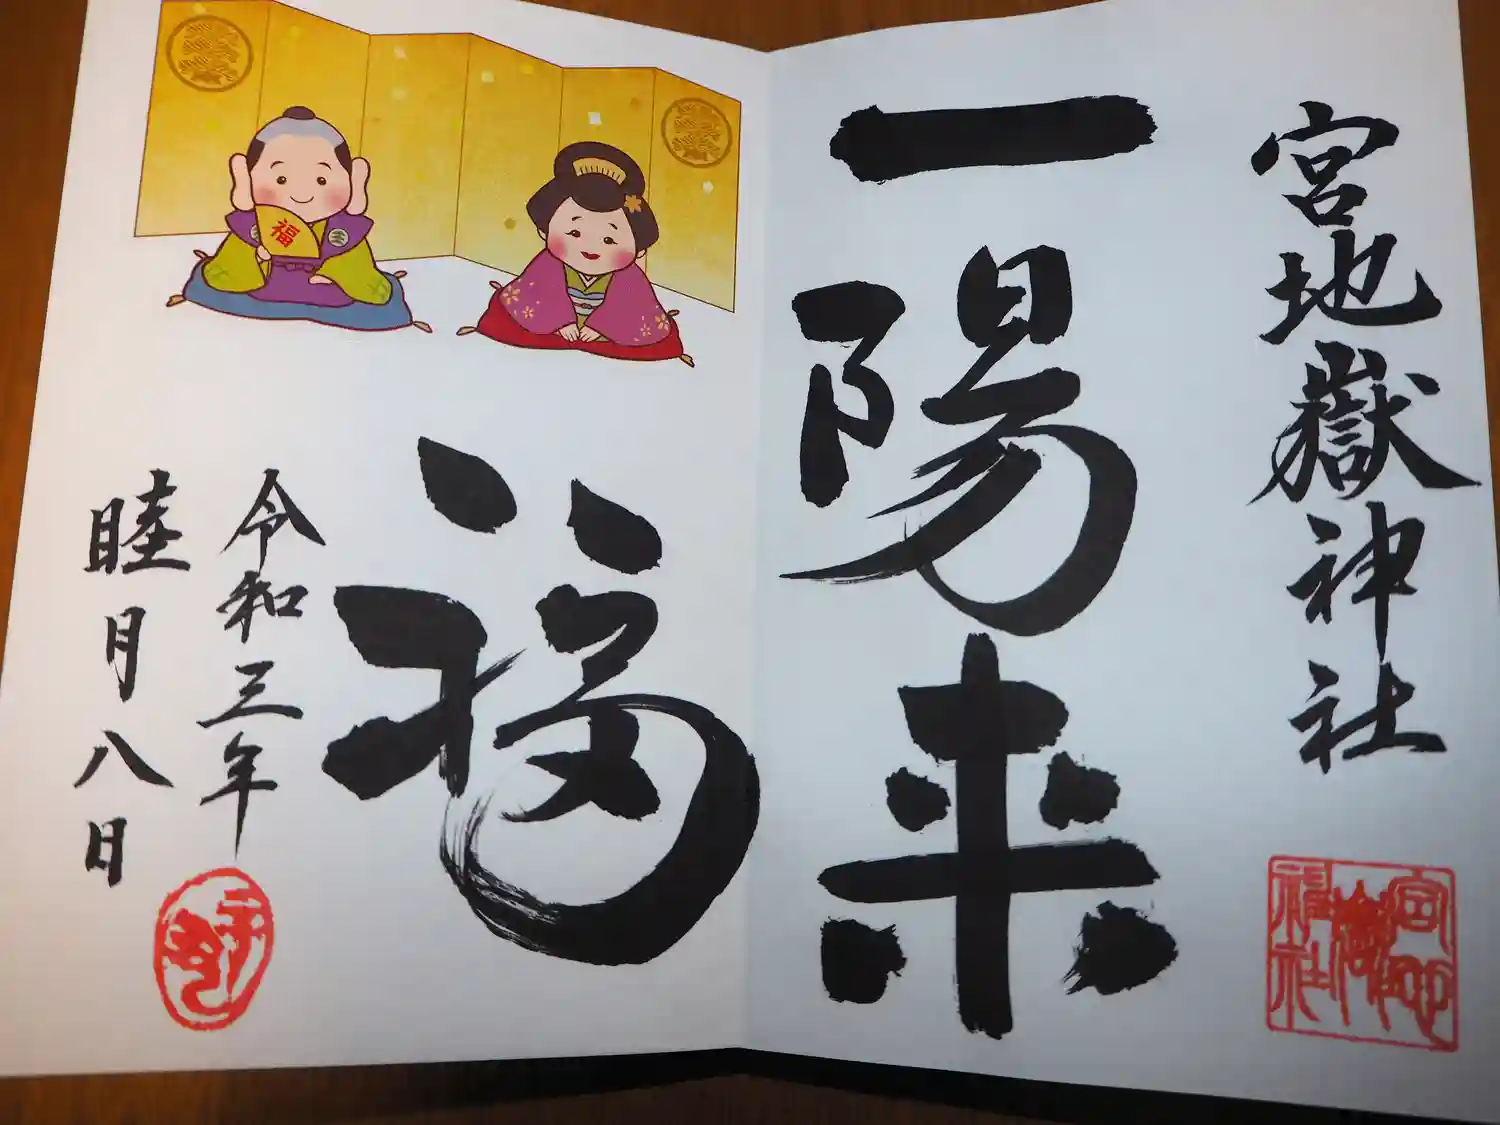 宮地嶽神社
一陽来
福
令和三年
睦月八日
福
宮地嶽神社